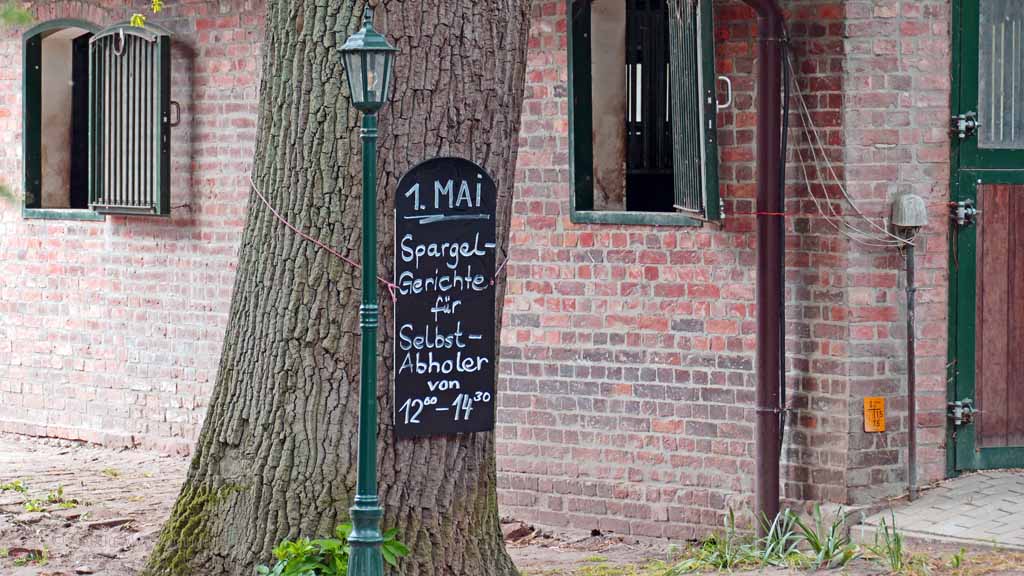 1. MAI
Spargel-
Gerichte
für
Selbst-
Abholer
von
12⁰⁰-14³⁰